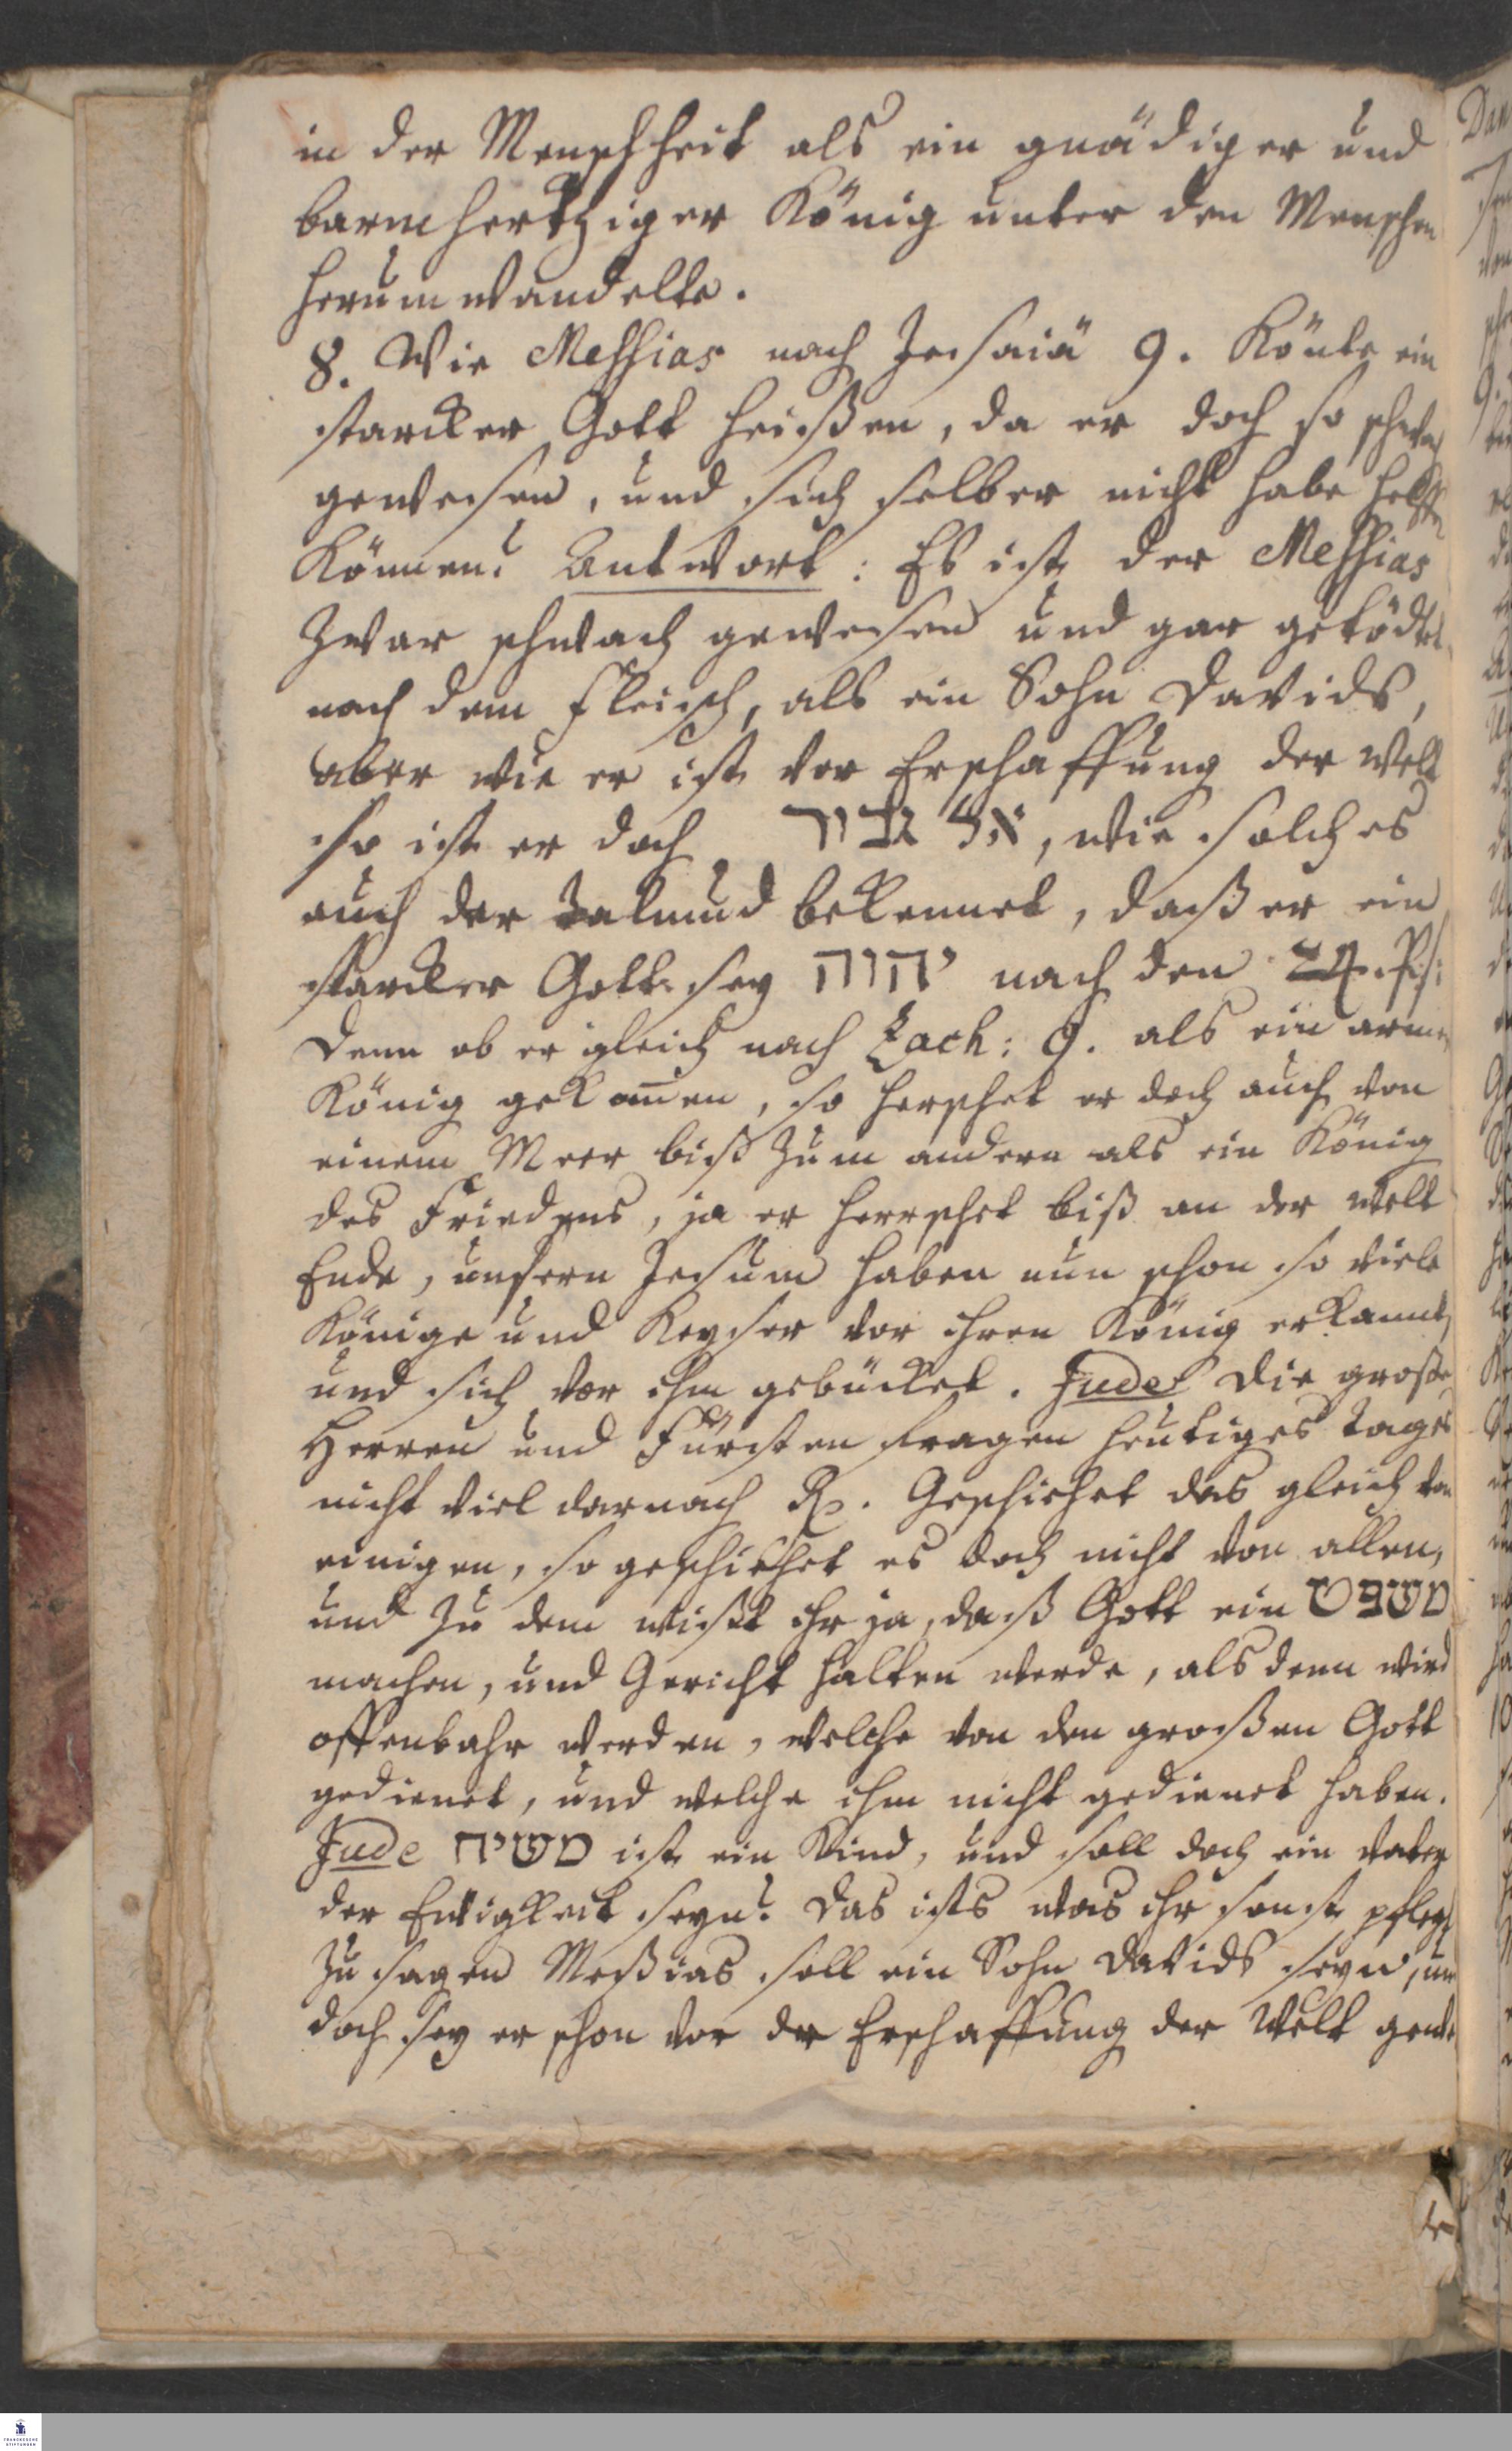 in der Menschheit als ein gnädiger und
barmhertziger König unter den Menschen
herum wandelte.
8. Wie Messias nach Jesaiä 9. Könte ein
starcker Gott heißen, da er doch so schwach
gewesen, und sich selber nicht habe helffen
Können? Antwort: Es ist der Messias
Zwar schwach gewesen und gar getödtet
nach dem Fleisch, als ein Sohn Davids,
aber wie er ist vor Erschaffung der Welt
so ist er doch אל גבור, wie solches
auch der Talmud bekennet, daß er ein
starcker Gott sey יהוה nach den 24. Ps:
Denn ob er gleich nach Zach: 9. als ein armer
König gekom̄en, so herschet er doch auch von
einem Meer biß Zum andern als ein König
des Friedens, ja er herrschet biß an der Welt
Ende, unsern Jesum haben nun schon so viele
Könige und Keyser vor ihren König erkannt,
und sich vor ihm gebücket. Jude Die große
Herren und Fürsten fragen heutiges Tages
nicht viel darnach Rx. Geschiehet das gleich von
einigen, so geschiehet es doch nicht von allen,
und Zu dem wißt ihr ja, daß Gott ein משפט
machen, und Gericht halten werde, als denn wird
offenbahr werden, welche von den großen Gott
gedienet, und welche ihm nicht gedienet haben.
Jude משיח ist ein Kind, und soll doch ein Vater
der Ewigkeit seyn? Das ists was ihr sonst pflegt
Zu sagen Meßias soll ein Sohn Davids seyn, und
doch sey er schon vor der Erschaffung der Welt gewe
FRANCKESCHE
STIFTUNGEN